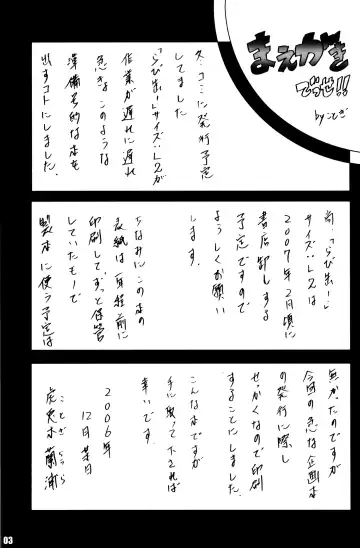 まえがき
でっせ!!
byことぎ
冬コミに発行予定
してました
「らびゅーしサイズ:L2が
作業が遅れに遅れ
急きょこのような
準備号的な本を
出すコトにしました。
尚、「らびゅー
サイズ:L2は
2007年2月頃に
書店卸しする
予定ですので
ようしくお願い
します。
ちなみにこの本の
表紙は一年程前に
印刷して、ずっと保管
していたもので
製本に使う予定は
無かったのですが
今回の急な企画本
の発行に際し
せっかくなので印刷
することにしました。
こんな本ですが
手に取って下されば
幸いです。
2006年
12月某日
ことぎ
虎兎木 蘭浦
03